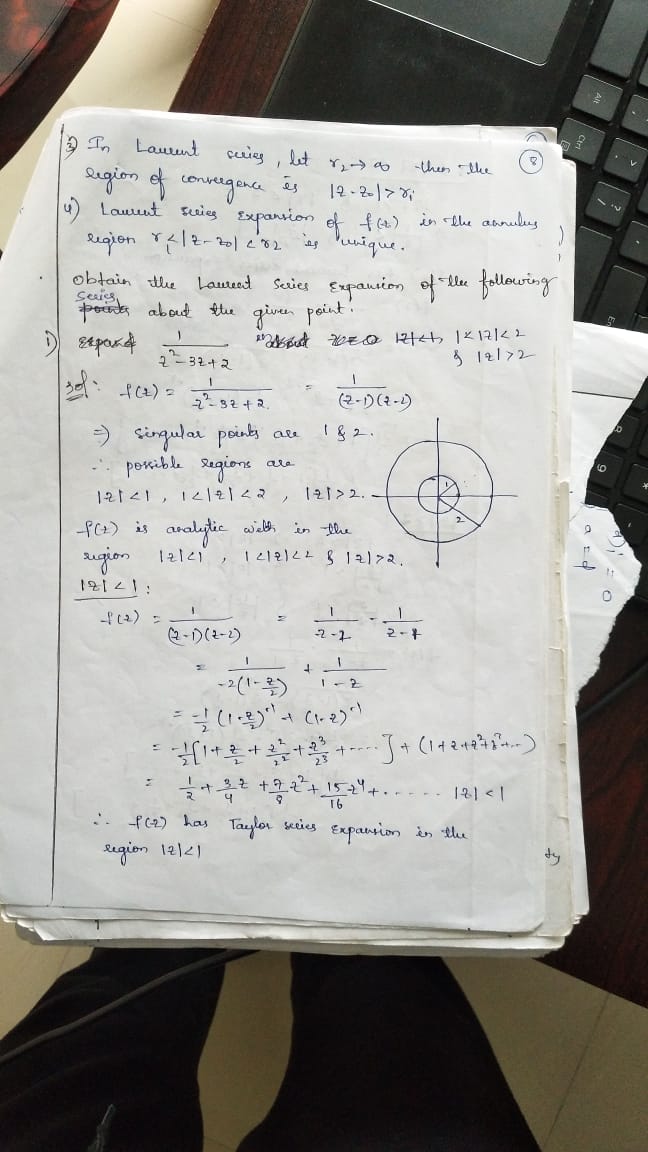 3) In Laurent series, let r₂→∞ then the
region of convergence is |z-z₀|>r₁
4) Laurent series Expansion of f(z) in the annulus
region r₁<|z-z₀|<r₂ is unique.
8
Obtain the Laurent Series Expansion of the following
series
points about the given point.
1) expand 1/(z²-3z+2) about z=0 |z|<1, 1<|z|<2
& |z|>2
Sol: f(z) = 1/(z²-3z+2) = 1/((z-1)(z-2))
⇒ Singular points are 1 & 2.
∴ possible regions are
|z|<1, 1<|z|<2, |z|>2.
1
2
f(z) is analytic with in the
region |z|<1, 1<|z|<2 & |z|>2.
|z|<1:
f(z) = 1/((z-1)(z-2)) = 1/(z-2) - 1/(z-1)
= 1/(-2(1-z/2)) + 1/(1-z)
= -1/2 (1-z/2)⁻¹ + (1-z)⁻¹
= -1/2[1+z/2+z²/2²+z³/2³+....] + (1+z+z²+z³+..)
= 1/2+3/4 z+7/8 z²+15/16 z⁴+...... |z|<1
∴ f(z) has Taylor series Expansion in the
region |z|<1
Alt
Ctrl